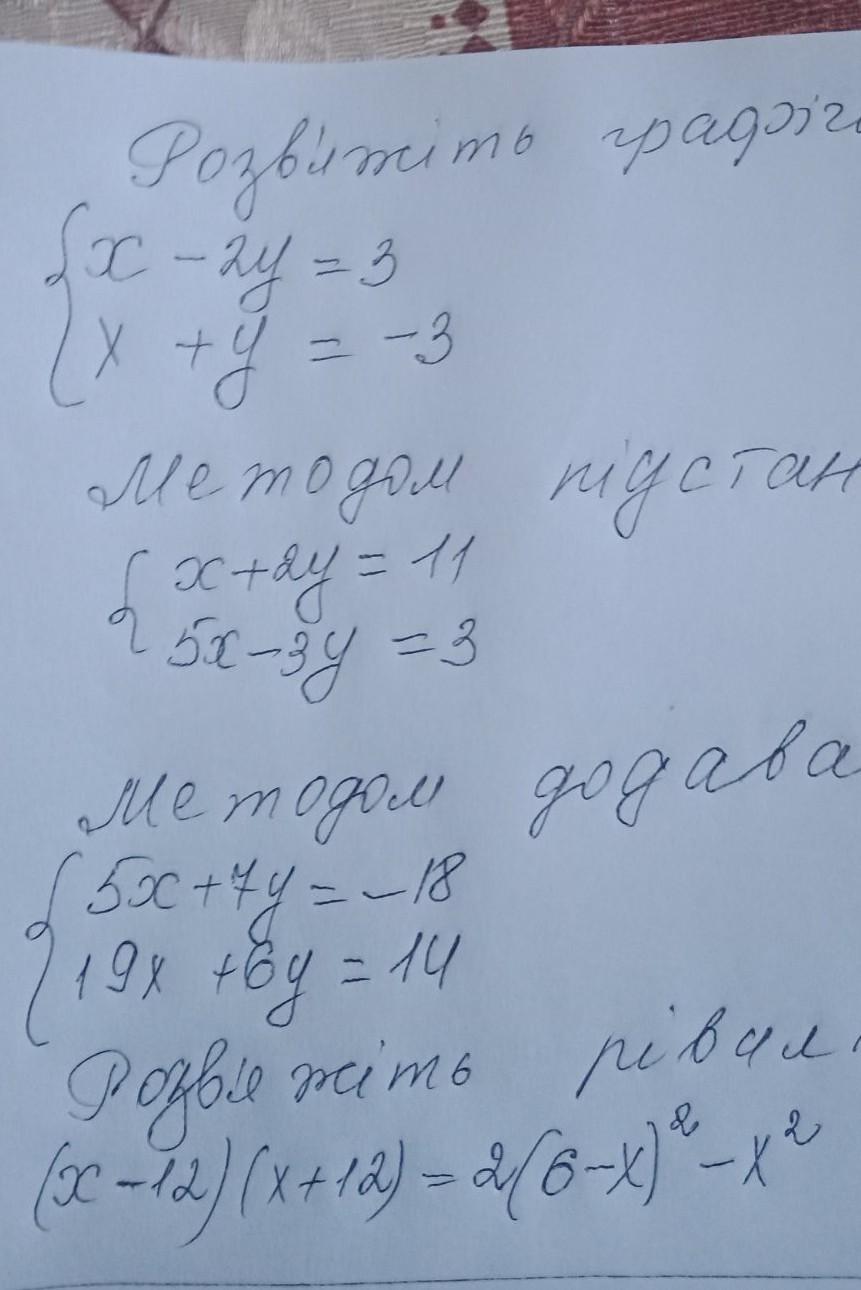 Розв'яжіть графіч
x - 2y = 3
x + y = -3
Методом підстан
x + 2y = 11
5x - 3y = 3
Методом додава
5x + 7y = -18
19x + 6y = 14
Розв'яжіть рівнян
(x - 12)(x + 12) = 2(6 - x)² - x²